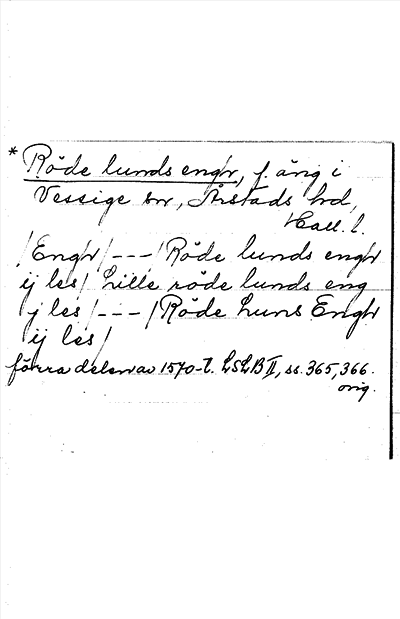 * Röde lunds engr, f. äng i
Vessige sn, Årstads hd,
Hall. l.
/Engr/ --- /Röde lunds engr
ij les/ Lille röde lunds eng
j les/ --- /Röde Luns Engr
ij les/
förra delen av 1570-t. LSLB II, ss. 365, 366.
orig.